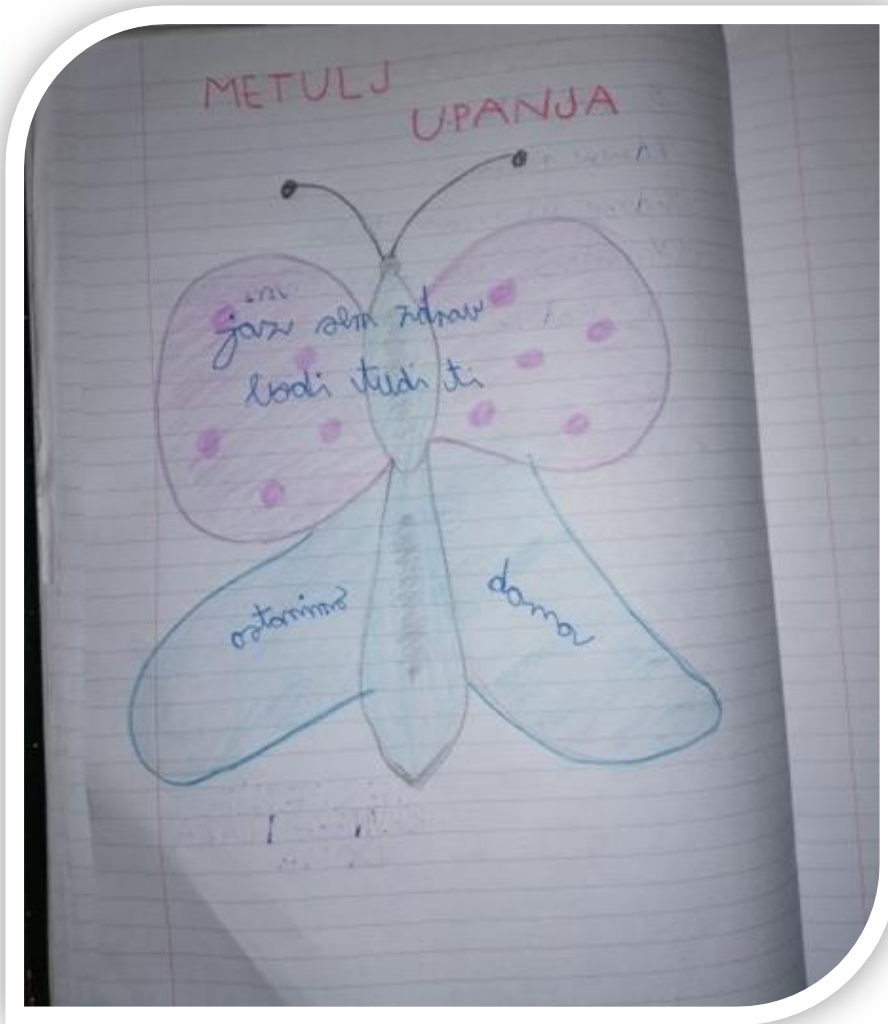 METULJ
UPANJA
jaz sem zdrav
bodi tudi ti
ostanimo
doma